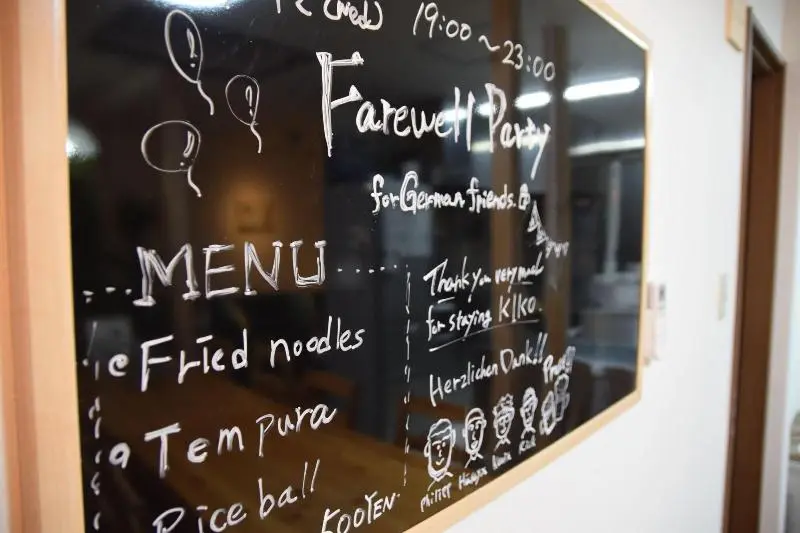 (Wed) 19:00~23:00
Farewell Party
for German friends.
MENU
Fried noodles
Tempura
Rice ball
Thank you very much
for staying KIKO.
Herzlichen Dank!!
Prost!!
Philipp